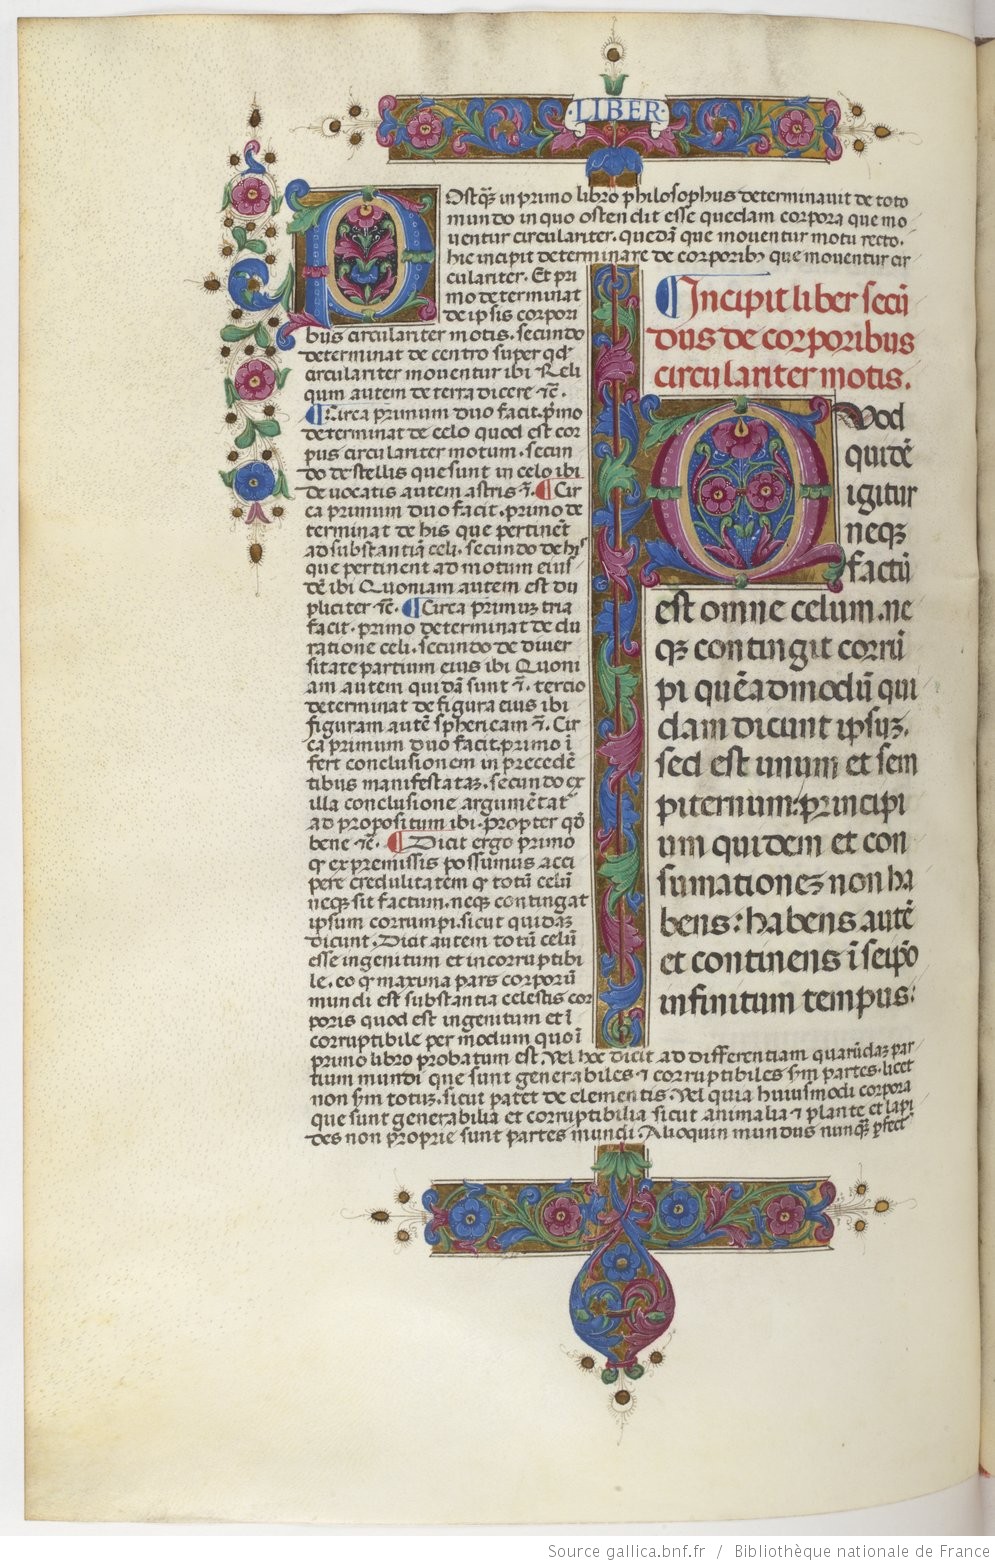 LIBER
Ostq̃ in primo libro philosophus determinauit de toto
mundo in quo ostendit esse quedam corpora que mo
uentur circulariter. quedã que mouentur motu recto.
hic incipit determinare de corporibꝫ que mouentur cir
culariter. Et pri
mo determinat
de ipsis corpori
bus circulariter motis. secundo
determinat de centro super qđ
circulariter mouentur ibi Reli
quum autem de terra dicere ⁊c̃.
¶ Circa primum duo facit. p̃mo
determinat de celo quod est cor
pus circulariter motum. secun
do de stellis que sunt in celo ibi
de uocatis autem astris ⁊c̃. ¶ Cir
ca primum duo facit. primo de
terminat de his que pertinẽt
ad substantiã celi. secundo de hiis
que pertinent ad motum eius
dẽ ibi Quoniam autem est du
pliciter ⁊c̃. ¶ Circa primuꝫ tria
facit. primo determinat de du
ratione celi. secundo de diuer
sitate partium eius ibi Quoni
am autem quidã sunt ⁊c̃. tercio
determinat de figura eius ibi
figuram autẽ sphericam ⁊c̃. Cir
ca primum duo facit. primo ĩ
fert conclusionem in precedẽ
tibus manifestataꝫ. secundo ex
illa conclusione argumẽtat͛
ad propositum ibi. Propter qđ
bene ⁊c̃. ¶ Dicit ergo primo
ꝙ ex premissis possumus acci
pere credulitatem ꝙ totũ celũ
neqꝫ sit factum. neqꝫ contingat
ipsum corrumpi. sicut quidaꝫ
dicunt. Dicit autem totũ celũ
esse ingenitum et incorruptibi
le. eo ꝙ maxima pars corporũ
mundi est substantia celestis cor
poris quod est ingenitum et ĩ
corruptibile per modum quo ĩ
primo libro probatum est. Vel hoc dicit ad differentiam quarũdaꝫ par
tium mundi que sunt generabiles ⁊ corruptibiles sm̃ partes. licet
non sm̃ totuꝫ. sicut patet de elementis. Vel quia huiusmodi corpora
que sunt generabilia et corruptibilia sicut animalia ⁊ plante et lapi
des non proprie sunt partes mundi. Alioquin mundus nunqꝫ perfect͛
¶ Incipit liber secũ
dus de corporibus
circulariter motis.
Quod
quidẽ
igitur
neqꝫ
factũ
est omne celum. ne
qꝫ contingit corrũ
pi quẽadmodũ qui
dam dicunt ipsuꝫ.
sed est unum et sem
piternum: principi
um quidem et con
sumationeꝫ non ha
bens: habens autẽ
et continens ĩ seip̃o
infinitum tempus:
Source gallica.bnf.fr / Bibliothèque nationale de France